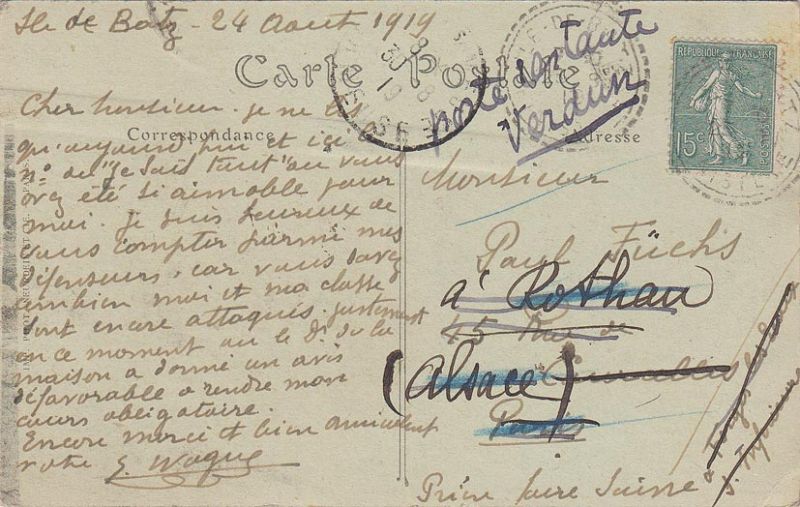 Ile de Batz - 24 Aout 1919
Carte Postale
Correspondance
Adresse
Cher Monsieur. je ne lis
qu'aujourd'hui et ici le
n° du "Je Sais tout" ou vous
avez été si aimable pour
moi. Je suis heureux de
vous compter parmi mes
défenseurs, car vous savez
combien moi et ma classe
sont encore attaqués. justement
en ce moment où le D. de la
maison a donné un avis
défavorable a rendre mon
cours obligatoire.
Encore merci et bien amicalement
votre
poste restante
Verdun
REPUBLIQUE FRANCAISE
15c
POSTES
Monsieur
Paul Füchs
à Rothau
45 Rue de
(Alsace)
Paris
Prière faire Suivre